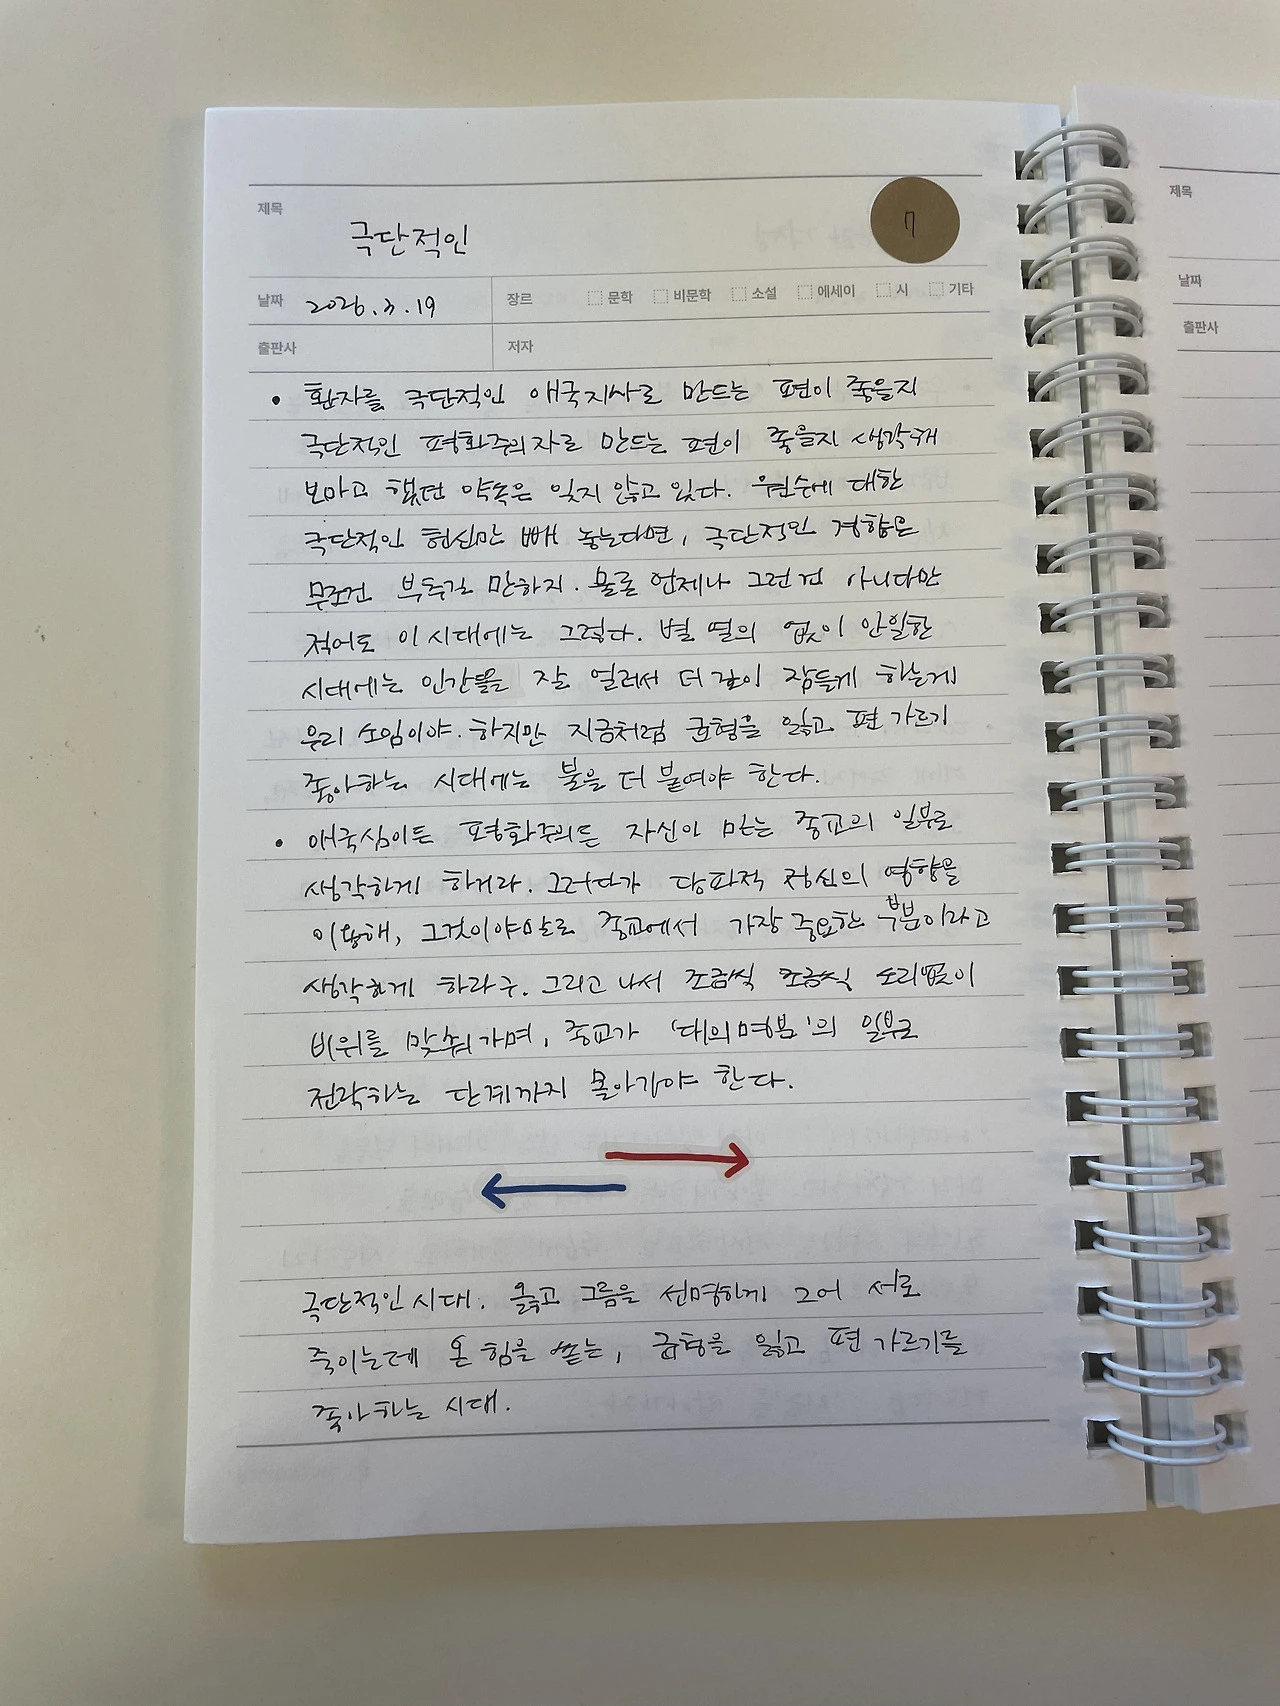 제목
극단적인
7
날짜 2026.3.19 장르 문학 비문학 소설 에세이 시 기타
출판사 저자
• 환자를 극단적인 애국지사로 만드는 편이 좋을지
극단적인 평화주의자로 만드는 편이 좋을지 생각해
보마고 했던 약속은 잊지 않고 있다. 원수에 대한
극단적인 헌신만 빼 놓는다면, 극단적인 경향은
무조건 부추길 만하지. 물론 언제나 그런건 아니다만
적어도 이 시대에는 그렇다. 별 열의 없이 안일한
시대에는 인간들을 잘 얼러서 더 깊이 잠들게 하는게
우리 소임이야. 하지만 지금처럼 균형을 잃고 편 가르기
좋아하는 시대에는 불을 더 붙여야 한다.
• 애국심이든 평화주의든 자신이 믿는 종교의 일부로
생각하게 하거라. 그러다가 당파적 정신의 영향을
이용해, 그것이야말로 종교에서 가장 중요한 부분이라고
생각하게 하라구. 그리고 나서 조금씩 조금씩 소리없이
비위를 맞춰가며, 종교가 '대의명분'의 일부로
전락하는 단계까지 몰아가야 한다.
극단적인 시대. 옳고 그름을 선명하게 그어 서로
죽이는데 온 힘을 쏟는, 균형을 잃고 편 가르기를
좋아하는 시대.
제목
날짜
출판사